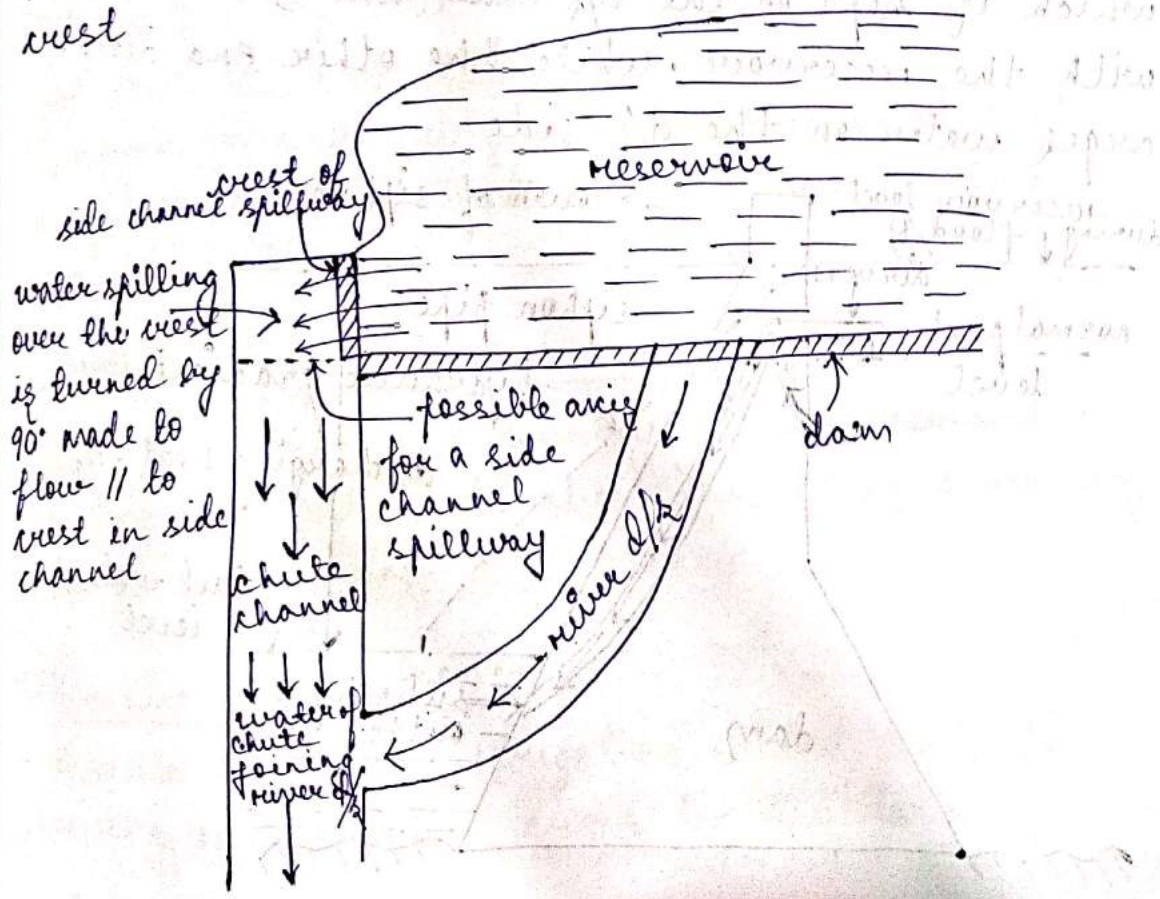 crest
reservoir
crest of
side channel spillway
water spilling
over the crest
is turned by
90° made to
flow // to
crest in side
channel
possible axis
for a side
channel
spillway
dam
river d/s
chute
channel
water of
chute
joining
river d/s